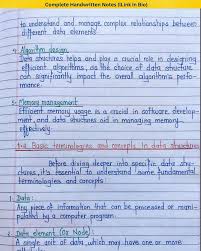 Complete Handwritten Notes (Link In Bio)
to understand and manage complex relationships between
different data elements
4- Algorithm design
Data structures helps and play a crucial role in designing
efficient algorithms, as the choice of data structure
can significantly impact the overall algorithms perfo-
rmance.
5- Memory management
Efficient memory usage is a crucial in software develop-
ment, and data structures aid in managing memory
effectively.
Basic terminologies and concepts in data structures
Before diving deeper into specific data stru-
ctures, it's essential to understand some fundamental
terminologies and concepts
1- Data:
Any piece of information that can be processed or mani-
pulated by a computer program
2- Data element (or Node)
A single unit of data, which may have one or more